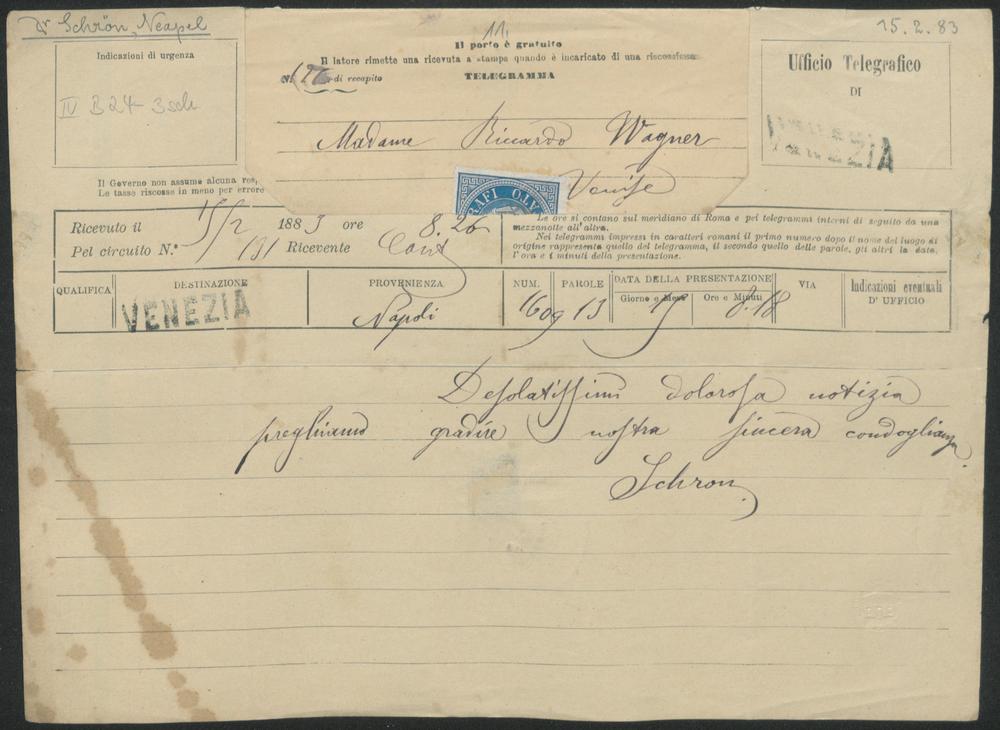 Dr Schrön, Neapel
15.2.83
Indicazioni di urgenza
IV B 24-3 sch
11.
Il porto è gratuito
Il latore rimette una ricevuta a stampa quando è incaricato di una riscossione
N. di recapito
TELEGRAMMA
Madame Riccardo Wagner
Venise
Ufficio Telegrafico
DI
VENEZIA
Il Governo non assume alcuna res
Le tasse riscosse in meno per errore
RAFI
ATO
Ricevuto il 15/2 1883 ore 8.26
Pel circuito N.° 131 Ricevente
Le ore si contano sul meridiano di Roma e pei telegrammi interni di seguito da una mezzanotte all'altra.
Nei telegrammi impressi in caratteri romani il primo numero dopo il nome del luogo di origine rappresenta quello del telegramma, il secondo quello delle parole, gli altri la data, l'ora e i minuti della presentazione.
QUALIFICA DESTINAZIONE PROVENIENZA NUM. PAROLE DATA DELLA PRESENTAZIONE VIA Indicazioni eventuali
Giorno e Mese Ore e Minuti D' UFFICIO
VENEZIA Napoli 1609 13 15 8.18
Desolatissimi dolorosa notizia
preghiamo gradire nostra sincera condoglianza.
Schron